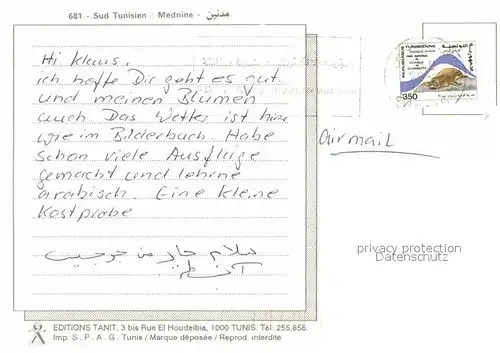 681 - Sud Tunisien : Mednine - مدنين
Hi Klaus,
ich hoffe Dir geht es gut
und meinen Blumen
auch Das Wetter ist hier
wie im Bilderbuch. Habe
schon viele Ausflüge
gemacht und lehrne
arabisch. Eine kleine
Kostprobe
سلام حار من جرجيس
REPUBLIQUE TUNISIENNE
350
airmail
privacy protection
Datenschutz
EDITIONS TANIT, 3 bis Rue El Houdeibia, 1000 TUNIS. Tél: 255.856.
Imp S.P.A.G. Tunis / Marque déposée / Reprod. interdite